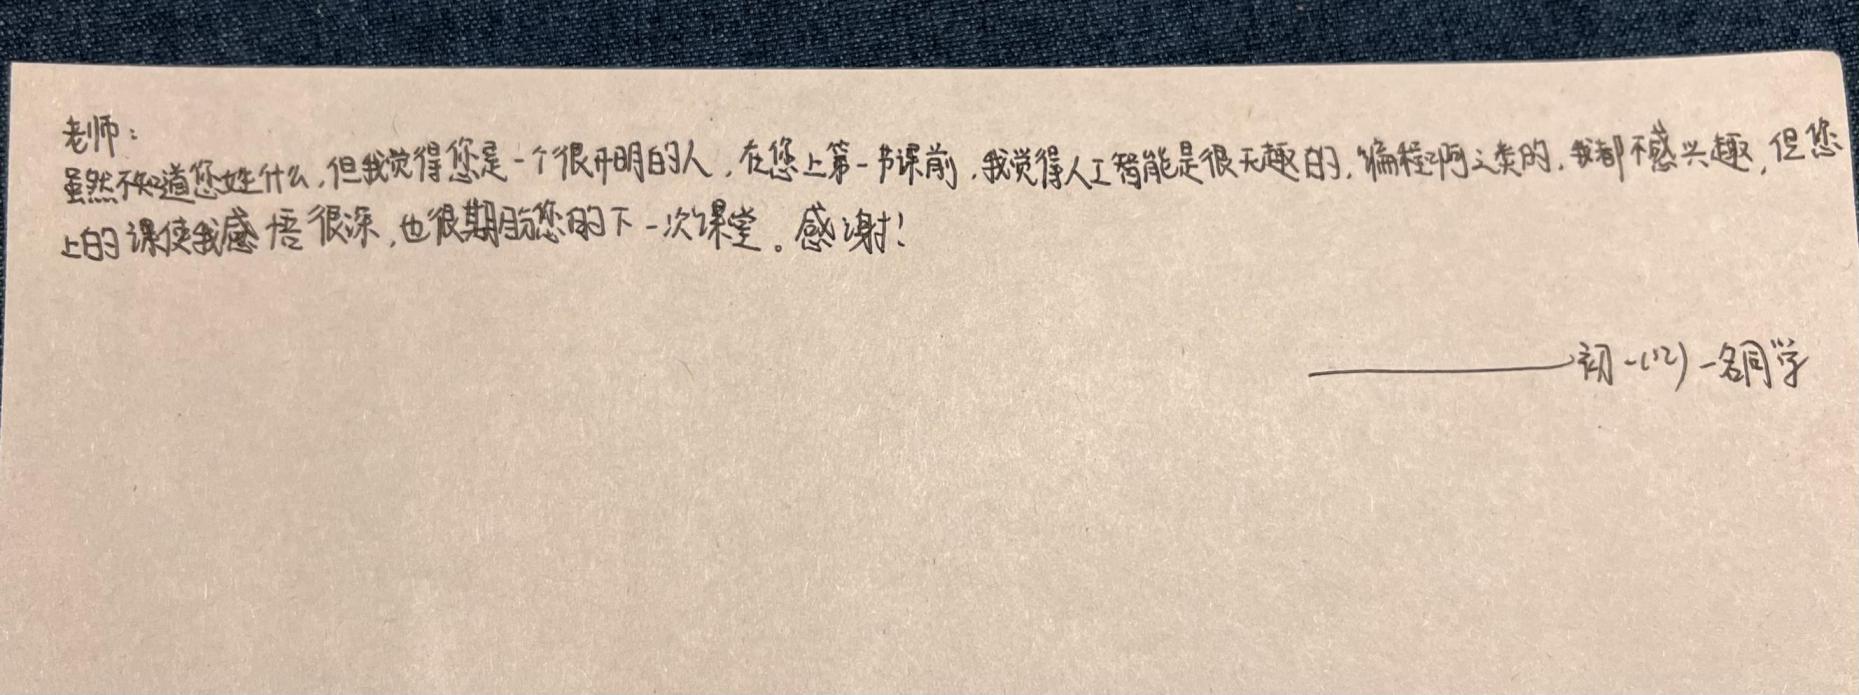 老师：
虽然不知道您姓什么，但我觉得您是一个很开明的人，在您上第一节课前，我觉得人工智能是很无趣的，编程啊之类的，我都不感兴趣，但您
上的课使我感悟很深，也很期盼您的下一次课堂。感谢！
——初一(12)一名同学